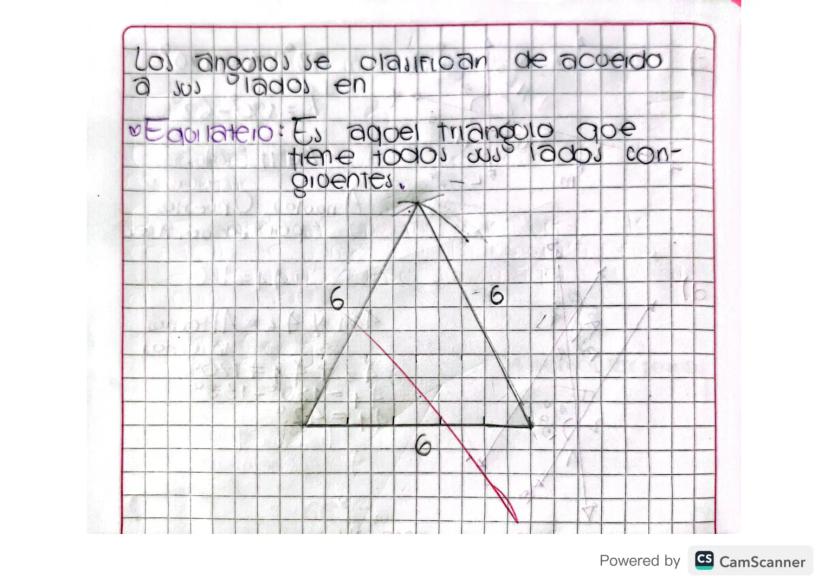 Los angulos se clasifican de acuerdo
a sus lados en
Equilatero: Es aquel triangulo que
tiene todos sus lados con-
gruentes.
6
6
6
Powered by CS CamScanner